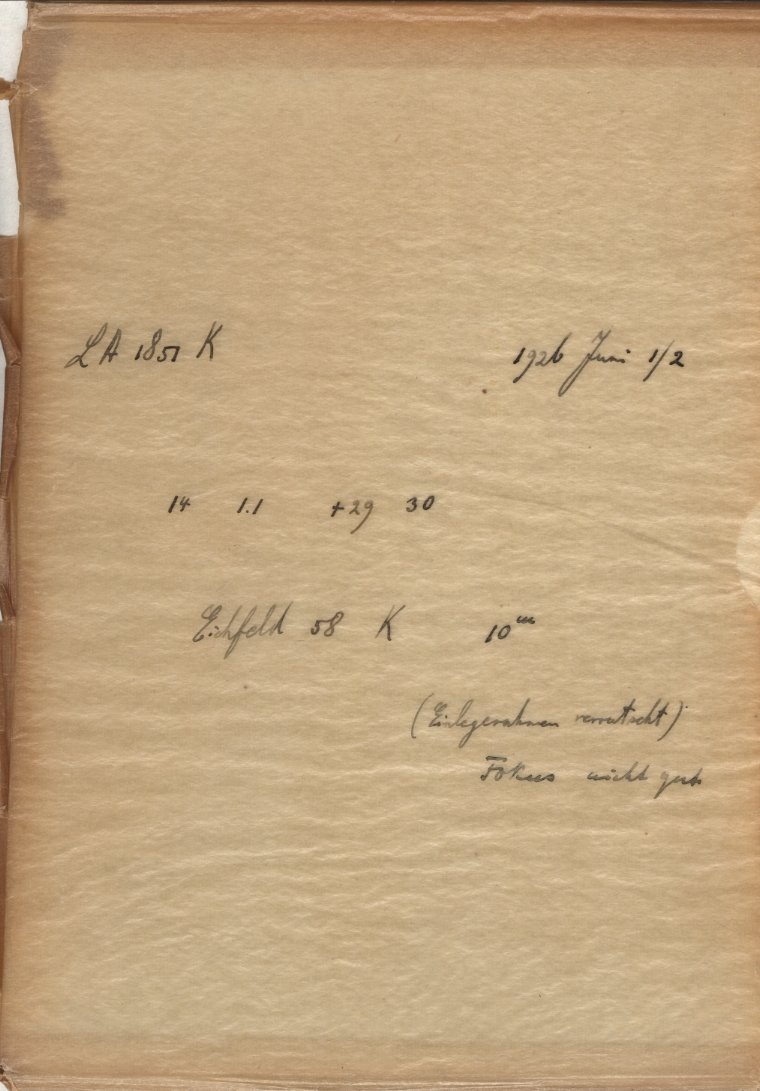 LA 1851 K 1926 Juni 1/2
14 1.1 +29 30
Eichfeld 58 K 10ᵐ
(Einlegerahmen verrutscht)
Fokus nicht gut